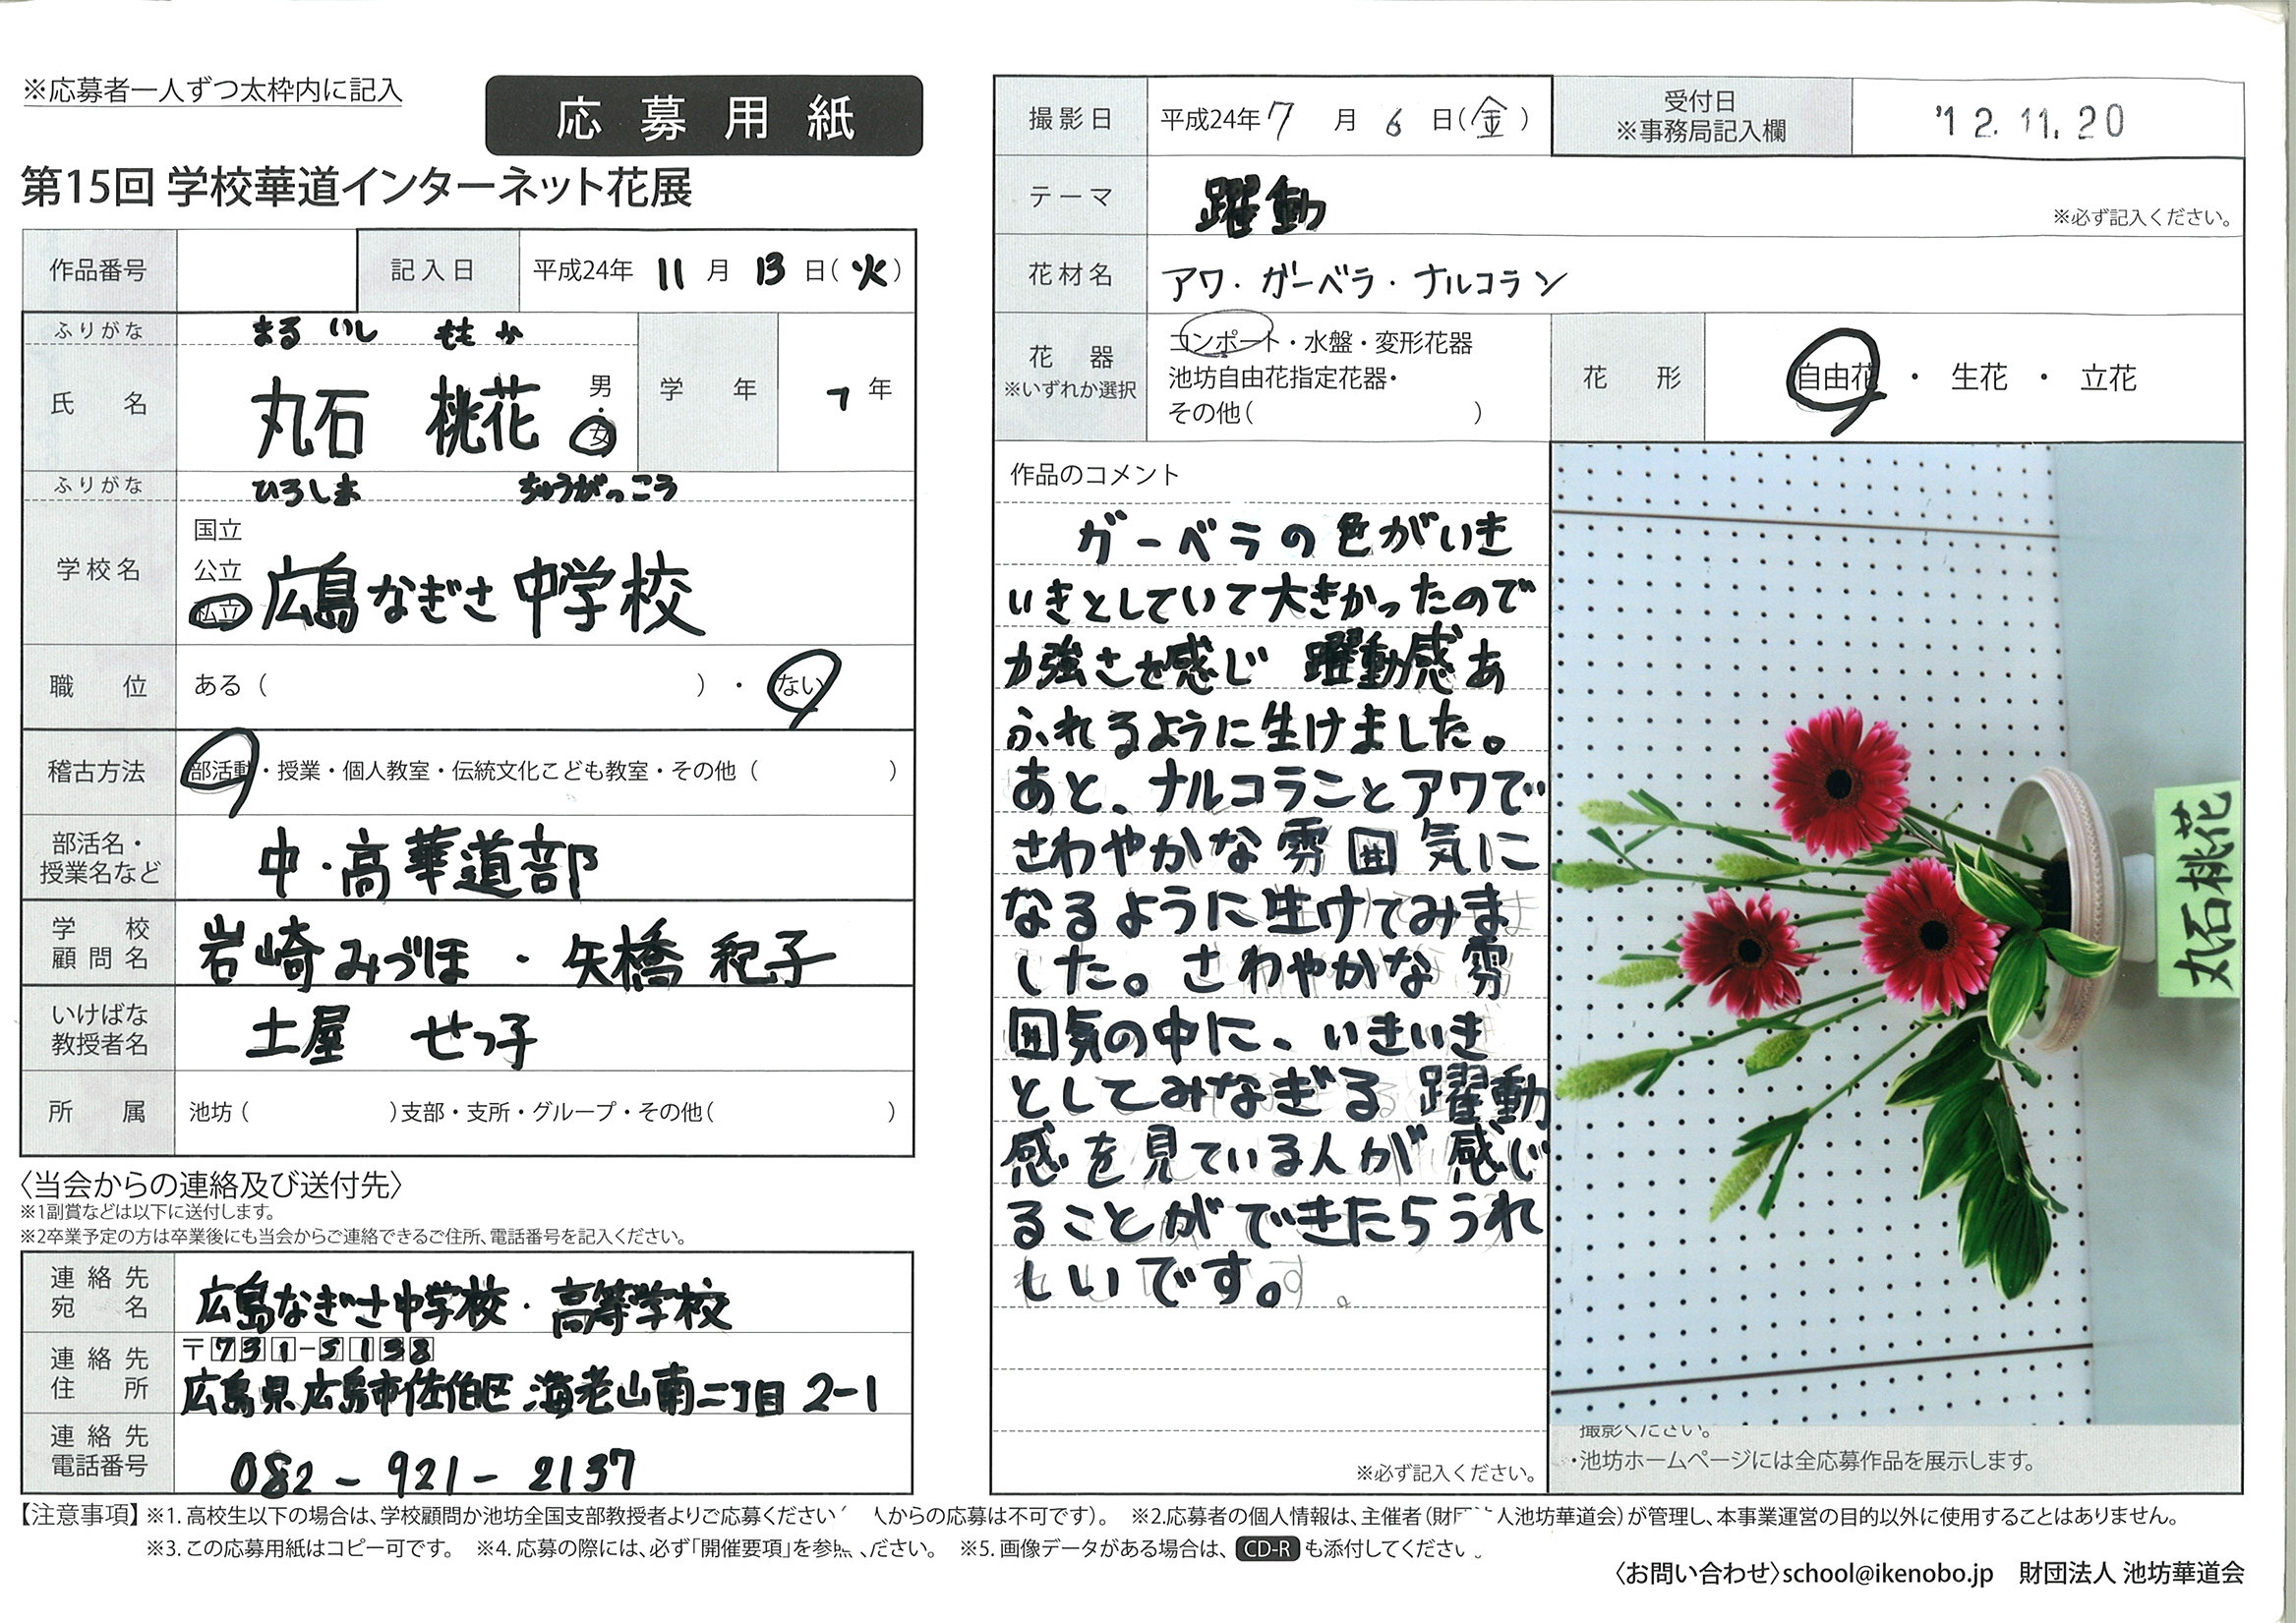 ※応募者一人ずつ太枠内に記入
応募用紙
第15回 学校華道インターネット花展
作品番号
記入日 平成24年 11 月 13 日(火)
ふりがな まる いし もも か
氏名 丸石 桃花 男・女
学年 1 年
ふりがな ひろしま ちゅうがっこう
学校名 国立
公立
私立 広島なぎさ中学校
職位 ある( )・ない
稽古方法 部活動・授業・個人教室・伝統文化こども教室・その他( )
部活名・
授業名など 中・高華道部
学校
顧問名 岩崎みづほ・矢橋 紀子
いけばな
教授者名 土屋 せつ子
所属 池坊( )支部・支所・グループ・その他( )
〈当会からの連絡及び送付先〉
※1副賞などは以下に送付します。
※2卒業予定の方は卒業後にも当会からご連絡できるご住所、電話番号を記入ください。
連絡先
宛名 広島なぎさ中学校・高等学校
〒731-5138
連絡先
住所 広島県広島市佐伯区海老山南二丁目2-1
連絡先
電話番号 082-921-2137
撮影日 平成24年 7 月 6 日(金)
受付日
※事務局記入欄 '12.11.20
テーマ 躍動
※必ず記入ください。
花材名 アワ・ガーベラ・ナルコラン
花器
※いずれか選択
コンポート・水盤・変形花器
池坊自由花指定花器・
その他( )
花形 自由花・生花・立花
作品のコメント
ガーベラの色がいき
いきとしていて大きかったので
力強さを感じ 躍動感あ
ふれるように生けました。
あと、ナルコランとアワで
さわやかな雰囲気に
なるように生けてみま
した。さわやかな雰
囲気の中に、いきいき
としてみなぎる躍動
感を見ている人が感じ
ることができたらうれ
しいです。
※必ず記入ください。
丸石桃花
撮影ください。
・池坊ホームページには全応募作品を展示します。
【注意事項】※1. 高校生以下の場合は、学校顧問か池坊全国支部教授者よりご応募ください 人からの応募は不可です)。 ※2.応募者の個人情報は、主催者(財団 人池坊華道会)が管理し、本事業運営の目的以外に使用することはありません。
※3. この応募用紙はコピー可です。 ※4. 応募の際には、必ず「開催要項」を参照 ださい。 ※5. 画像データがある場合は、CD-Rも添付してください。
〈お問い合わせ〉school@ikenobo.jp 財団法人 池坊華道会